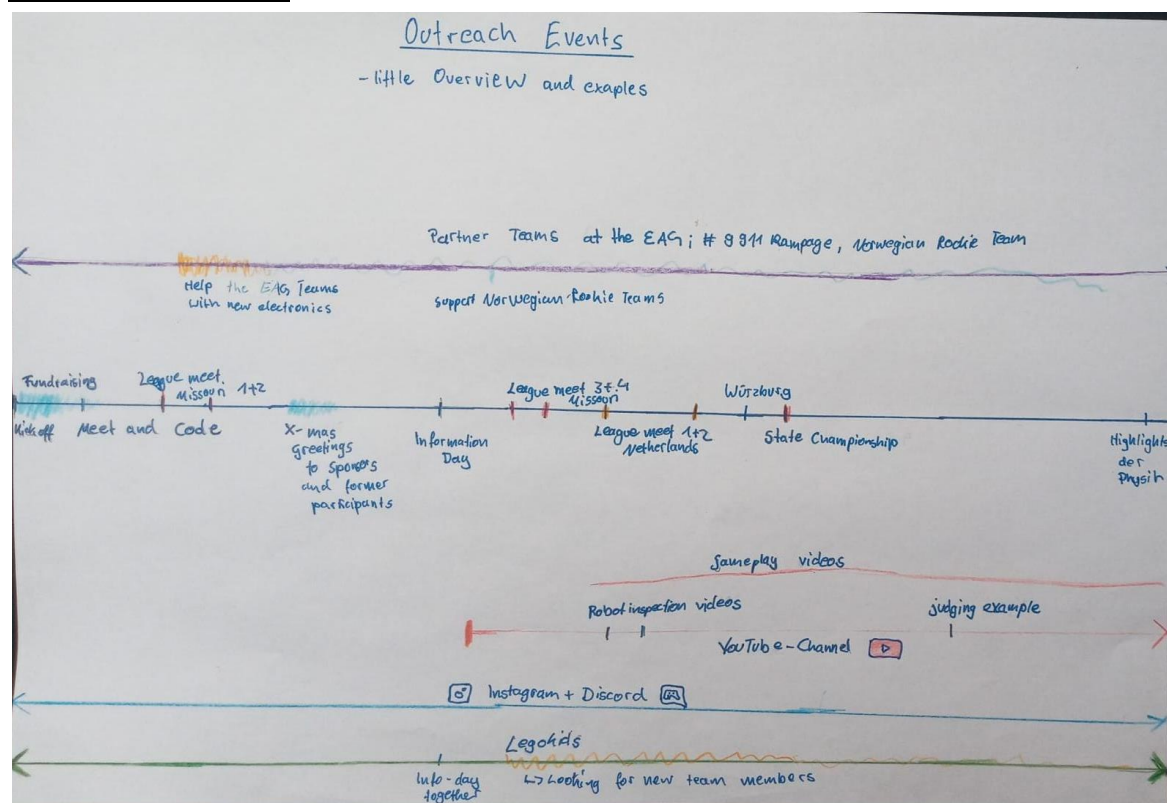 Outreach Events
- little Overview and exaples
Partner Teams at the EAG; # 9911 Rampage, Norwegian Rockie Team
Help the EAG Teams
with new electronics
support Norwegian-Rookie Teams
Fundraising
League meet
Missouri 1+2
League meet 3+4
Missouri
Würzburg
Kickoff
Meet and Code
X-mas
Greetings
to sponsors
and former
participants
Information
Day
League meet 1+2
Netherlands
State Championship
Highlights
der
Physik
Gameplay videos
Robot inspection videos
judging example
YouTube-Channel
Instagram + Discord
Legokids
Info-day
together
↳ Looking for new team members